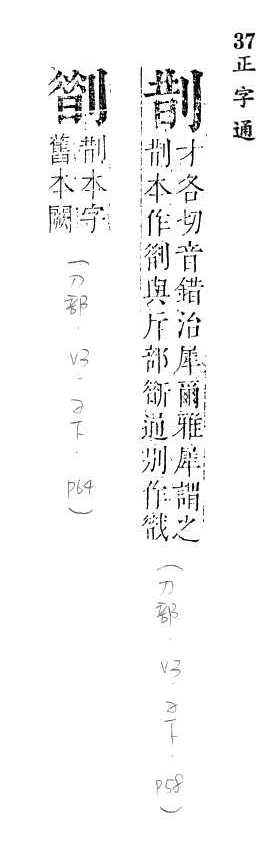 37正字通
剒
才各切音錯治犀爾雅犀謂之
剒本作與斤部通別作
(刀部.V3.子下.p58)
剒本字
舊本闕
(刀部.V3.子下.p64)